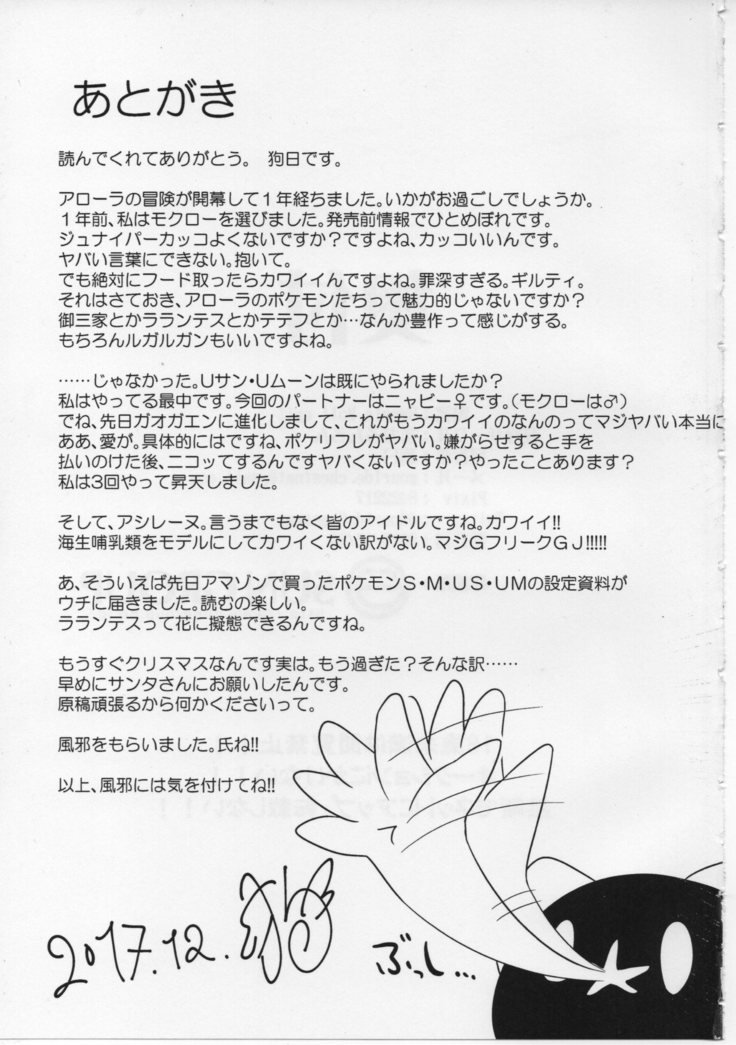 あとがき
読んでくれてありがとう。　狗日です。
アローラの冒険が開幕して１年経ちました。いかがお過ごしでしょうか。
１年前、私はモクローを選びました。発売前情報でひとめぼれです。
ジュナイパーカッコよくないですか？ですよね、カッコいいんです。
ヤバい言葉にできない。抱いて。
でも絶対にフード取ったらカワイイんですよね。罪深すぎる。ギルティ。
それはさておき、アローラのポケモンたちって魅力的じゃないですか？
御三家とかラランテスとかテテフとか…なんか豊作って感じがする。
もちろんルガルガンもいいですよね。
……じゃなかった。Ｕサン・Ｕムーンは既にやられましたか？
私はやってる最中です。今回のパートナーはニャビー♀です。（モクローは♂）
でね、先日ガオガエンに進化しまして、これがもうカワイイのなんのってマジヤバい本当に
ああ、愛が。具体的にはですね、ポケリフレがヤバい。嫌がらせすると手を
払いのけた後、ニコッてするんですヤバくないですか？やったことあります？
私は3回やって昇天しました。
そして、アシレーヌ。言うまでもなく皆のアイドルですね。カワイイ!!
海生哺乳類をモデルにしてカワイくない訳がない。マジＧフリークＧＪ!!!!!
あ、そういえば先日アマゾンで買ったポケモンＳ・Ｍ・ＵＳ・ＵＭの設定資料が
ウチに届きました。読むの楽しい。
ラランテスって花に擬態できるんですね。
もうすぐクリスマスなんです実は。もう過ぎた？そんな訳……
早めにサンタさんにお願いしたんです。
原稿頑張るから何かくださいって。
風邪をもらいました。氏ね!!
以上、風邪には気を付けてね!!
2017.12.
ぶっし…